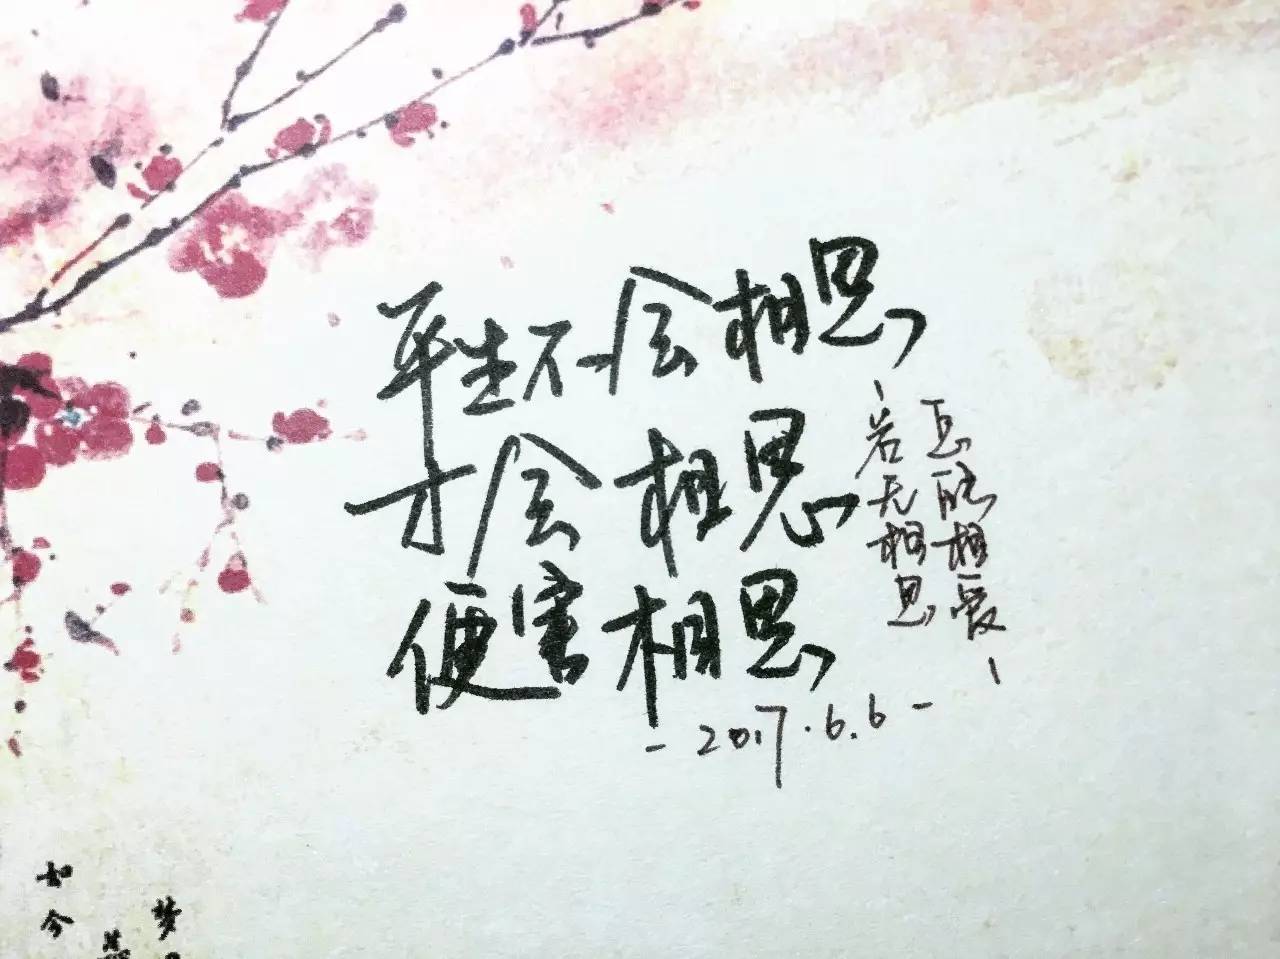 平生不会相思
才会相思
便害相思
若无相思
怎能相爱
-2017.6.6-
如今
梦